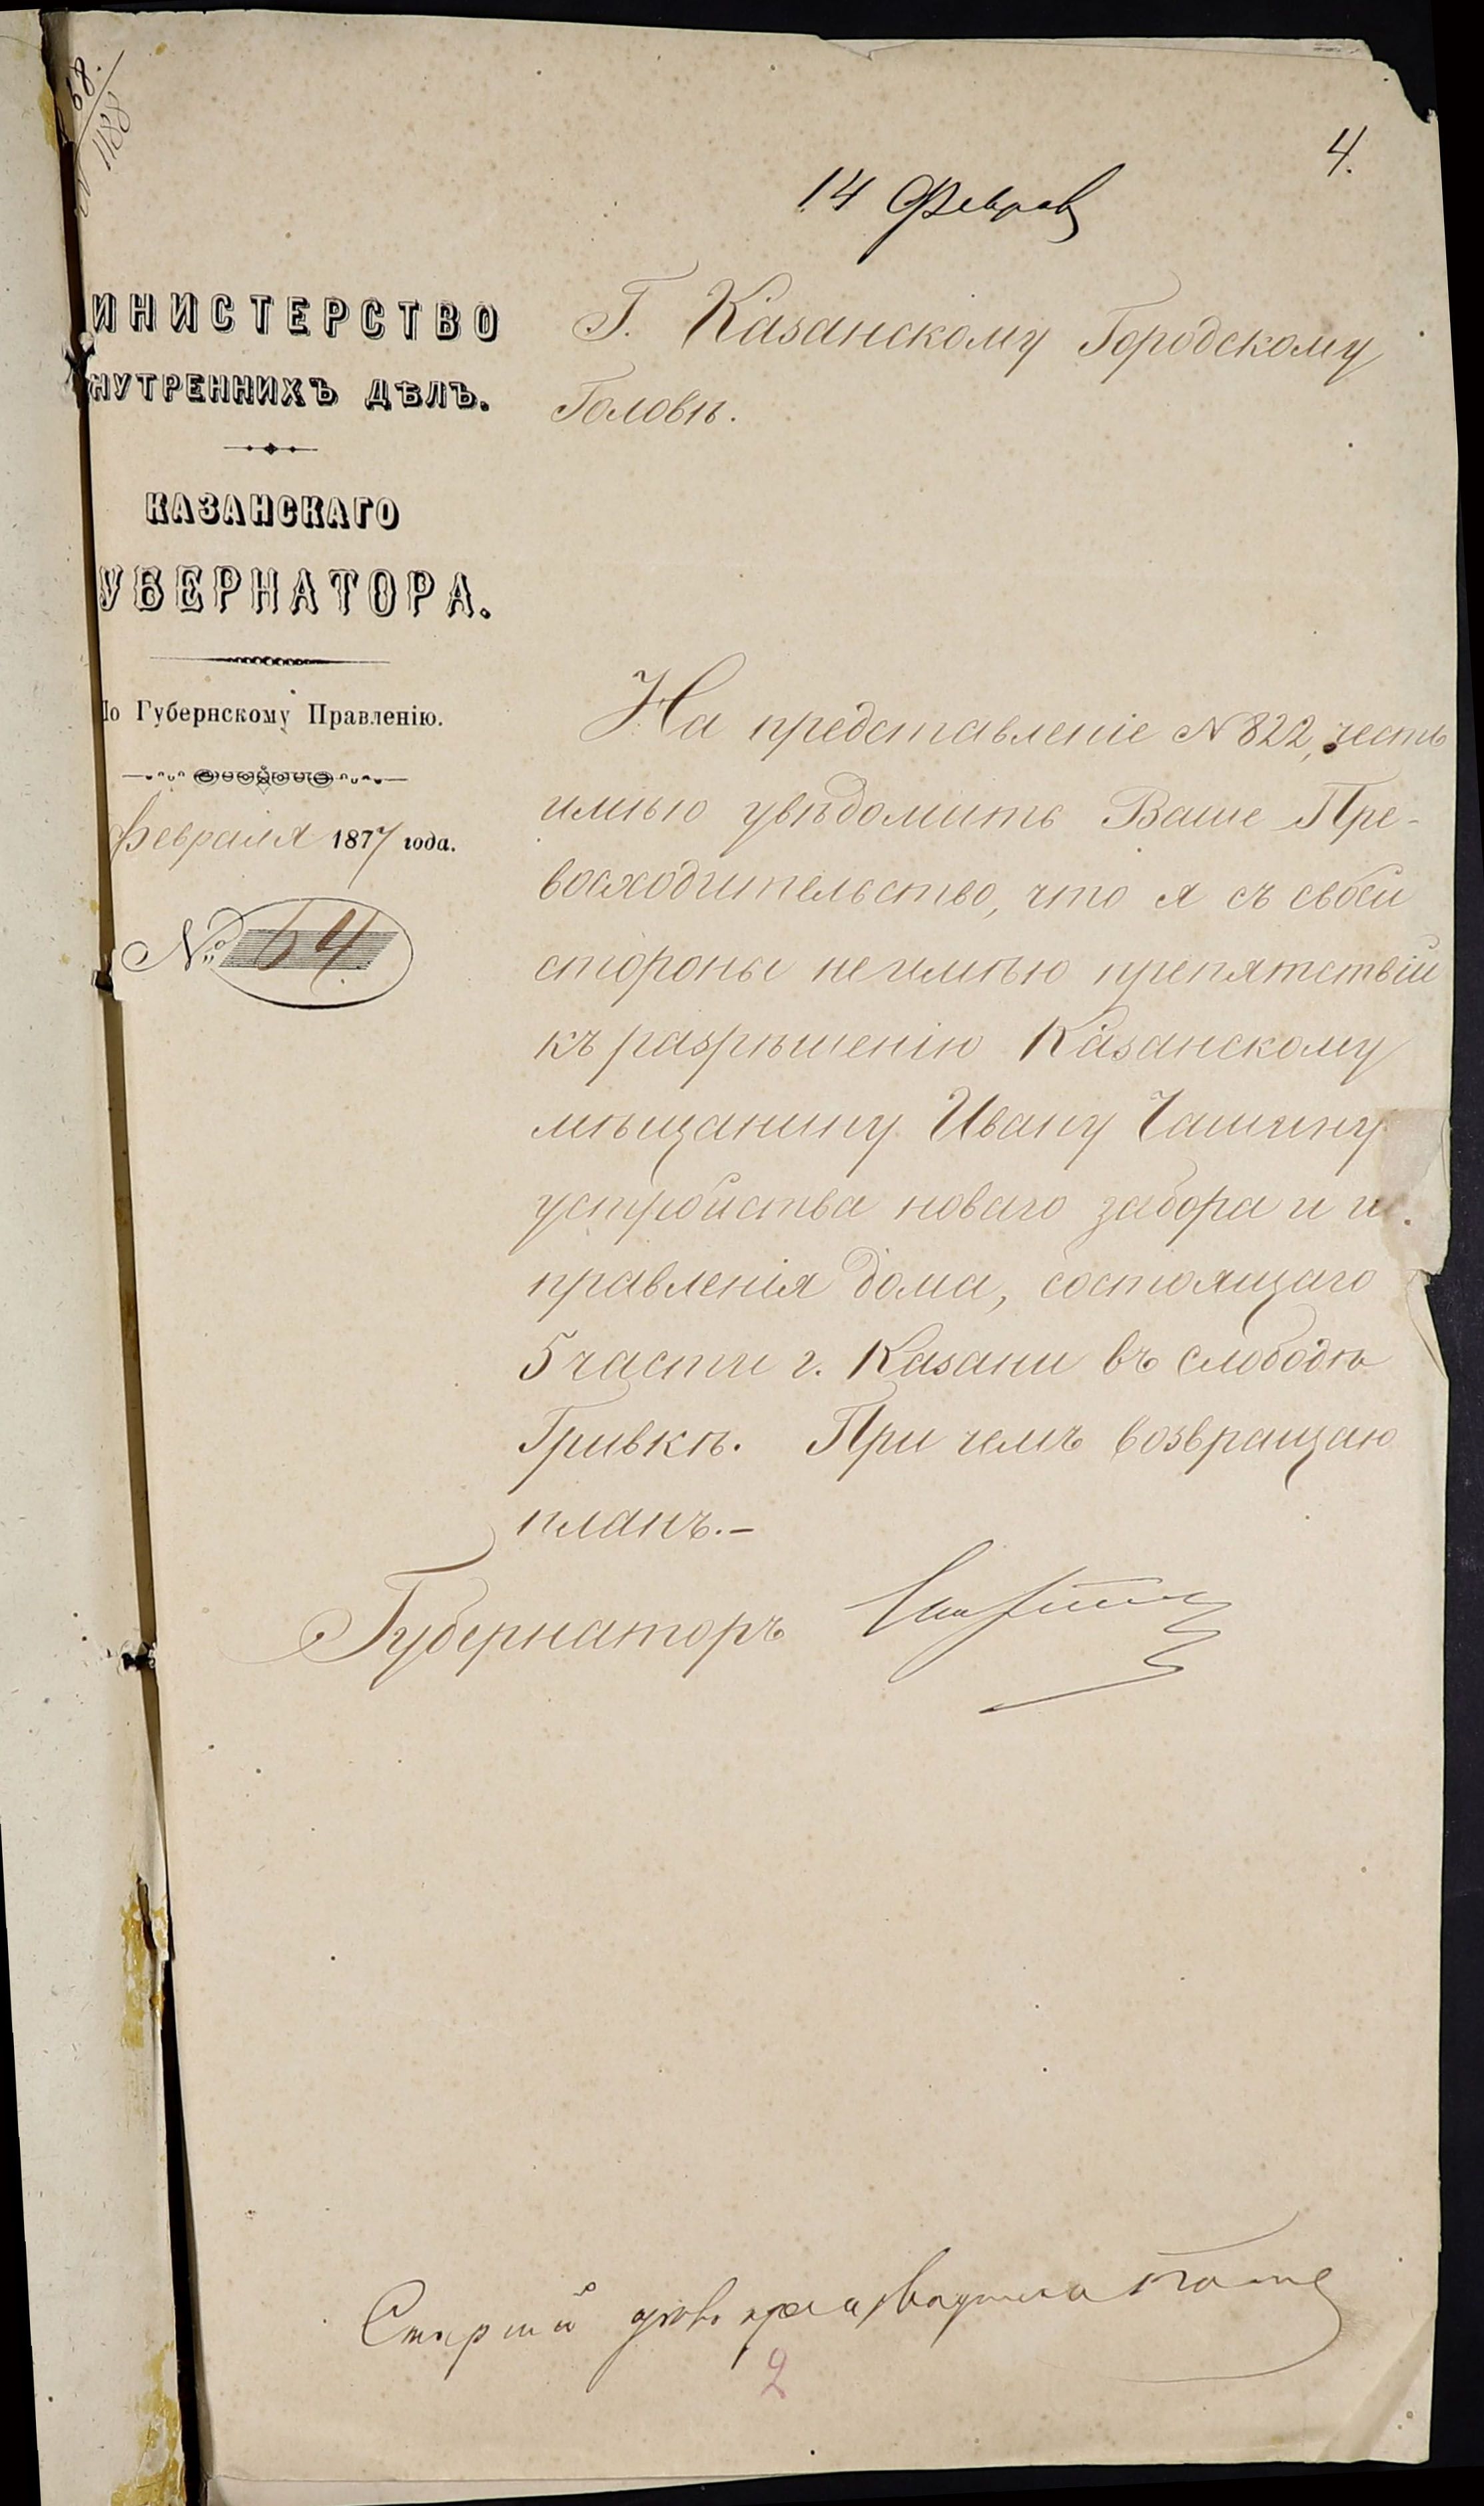 68.
1188
4.
14 Феврал
ИНИСТЕРСТВО
НУТРЕННИХЪ ДѢЛЪ.
КАЗАНСКАГО
УБЕРНАТОРА.
По Губернскому Правленію.
Февраля 1877 года.
№ 64.
Г. Казанскому Городскому
Головѣ.
На представленіе № 822, честь
имѣю увѣдомить Ваше Пре-
восходительство, что я съ своей
стороны не имѣю препятствій
къ разрѣшенію Казанскому
мѣщанину Ивану Чашину
устройства новаго забора и ис-
правленія дома, состоящаго
5 части г. Казани въ слободѣ
Гривкѣ. При чемъ возвращаю
планъ.–
Губернаторъ
Старшій
2